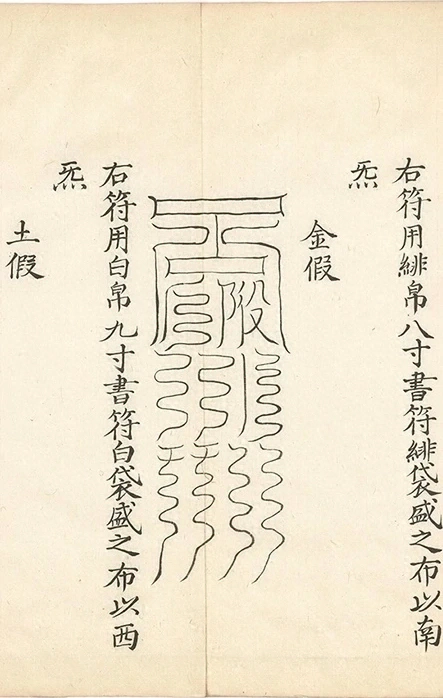 右符用緋帛八寸書符緋袋盛之布以南
炁
金假
右符用白帛九寸書符白袋盛之布以西
炁
土假